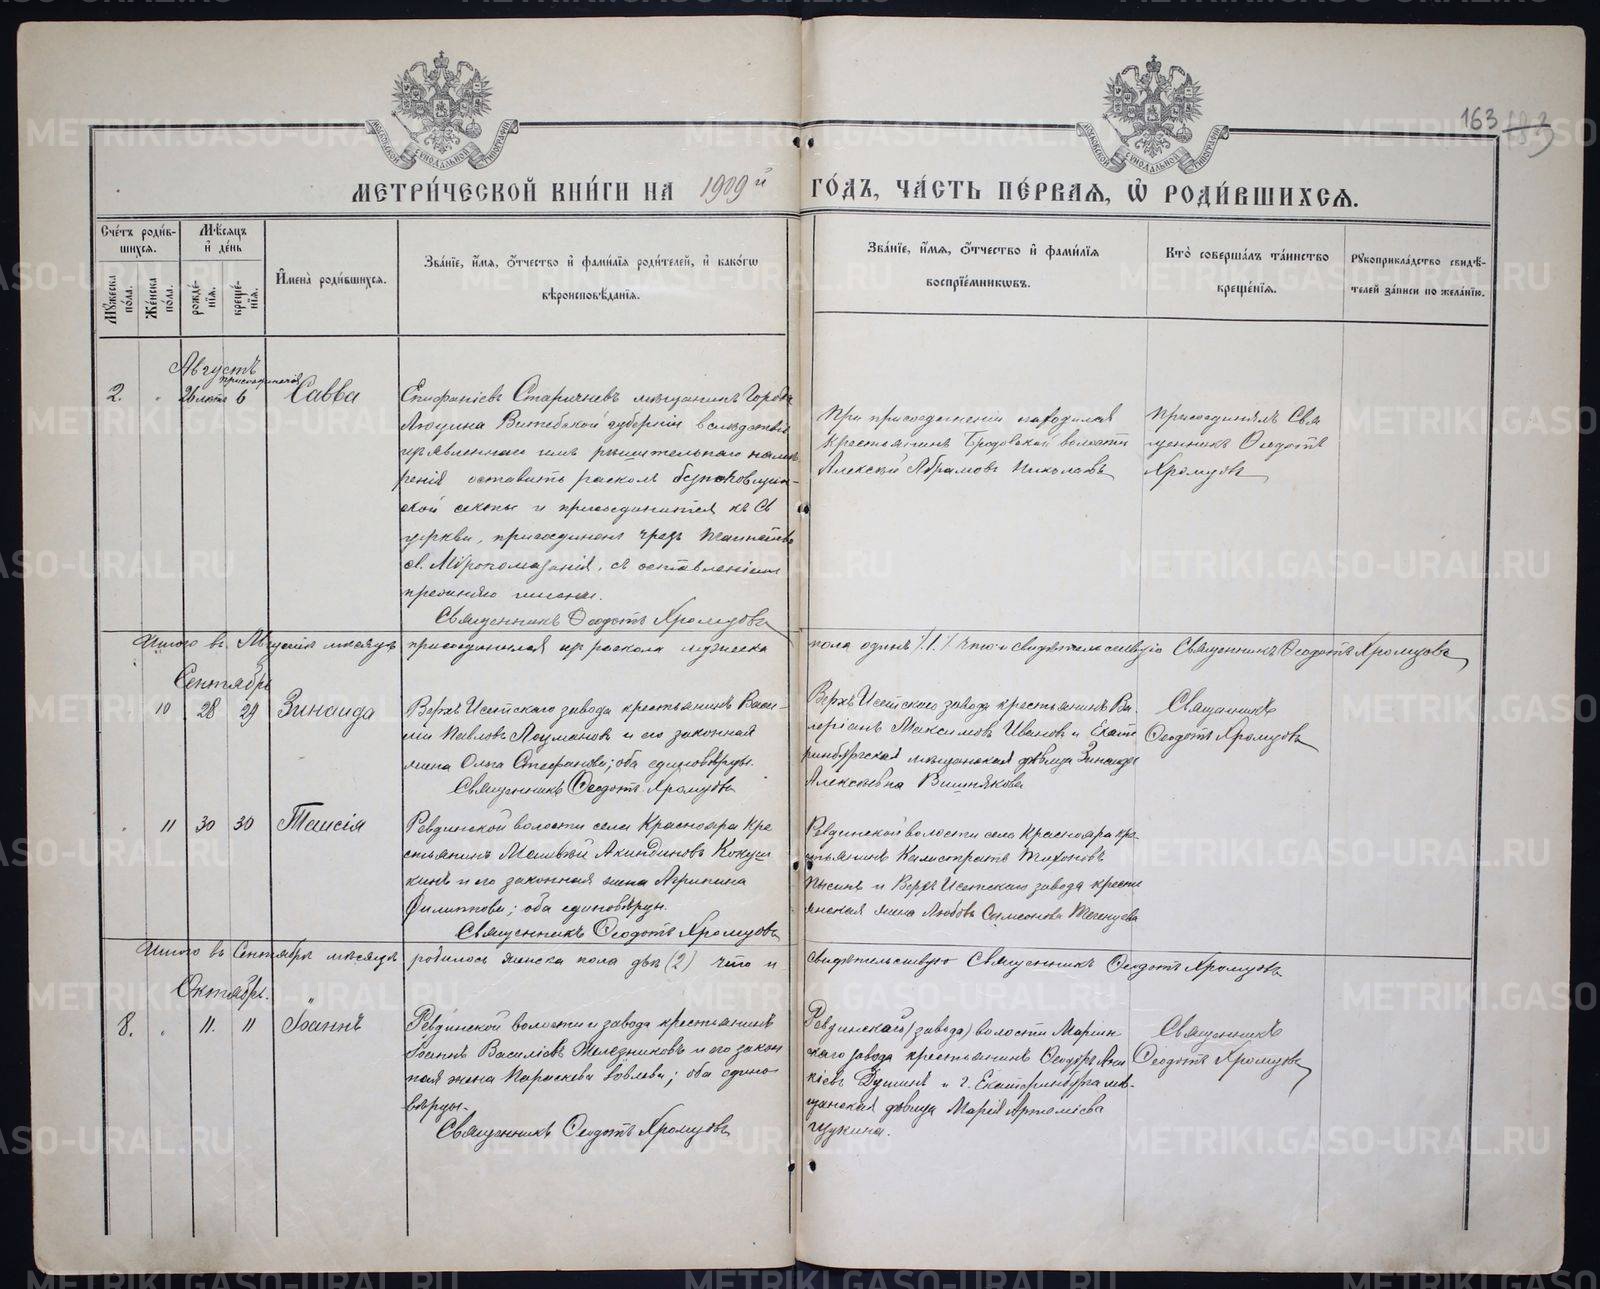 163 183
МОСКОВСКОЙ СѴНОДАЛЬНОЙ ТИПОГРАФІИ
МОСКОВСКОЙ СѴНОДАЛЬНОЙ ТИПОГРАФІИ
МЕТРИ́ЧЕСКОЙ КНИ́ГИ НА 1909й ГО́ДЪ, ЧА́СТЬ ПЕ́РВАЯ, Ѽ РОДИ́ВШИХСЯ.
Сче́тъ роди́в-
шихся.
Мѣ́сяцъ
и҆ де́нь
Мꙋ́жеска по́ла.
Же́нска по́ла.
рожде́-нїя.
креще́-нїя.
И҆мена̀ роди́вшихся.
Зва́нїе, и҆́мя, ѻ҆́тчество и҆ фами́лїя роди́телей, и҆ како́гѡ
вѣроисповѣ́данїя.
Зва́нїе, и҆́мя, ѻ҆́тчество и҆ фами́лїя
воспрїе́мникѡвъ.
Кто̀ соверша́лъ та́инство
креще́нїя.
Рꙋкоприкла́дство свидѣ́-
телей за́писи по жела́нїю.
Августъ
присоединенія
2. 26 лѣтъ 6 Савва
Епифаніевъ Старичневъ мѣщанинъ Города
Люцина Витебской губерніи вслѣдствіе
изъявленнаго имъ рѣшительнаго намѣ-
ренія оставить расколъ безпоповщин-
ской секты и присоединится къ Св
церкви, присоединенъ чрезъ Таинство
св. Мѵропомазанія, съ оставленіемъ
прежняго имени.
Священникъ Ѳеодотъ Хромцовъ
При присоединеніи находился
крестьянинъ Бродовской волости
Алексѣй Абрамовъ Николаевъ
Присоединялъ Свя
щенникъ Ѳеодотъ
Хромцовъ
Итого въ Августѣ мѣсяцѣ присоединился изъ раскола мужеска пола одинъ /1/ что и свидѣтельствую Священникъ Ѳеодотъ Хромцовъ
Сентябрь
10 28 29 Зинаида
Верхъ Исетскаго завода крестьянинъ Васи-
лій Павловъ Лоумановъ и его законная
жена Ольга Стефанова; оба единовѣрцы.
Священникъ Ѳеодотъ Хромцовъ
Верхъ Исетскаго завода крестьянинъ Ва-
леріанъ Максимовъ Ивановъ и Екате
ринбургская мѣщанская дѣвица Зинаида
Алексѣевна Вишнякова
Священникъ
Ѳеодотъ Хромцовъ
11 30 30 Таисія
Ревдинской волости села Краснояра кре
стьянинъ Матвѣй Акиндиновъ Кокуш
кинъ и его законная жена Агрипина
Филиппова; оба единовѣрцы.
Священникъ Ѳеодотъ Хромцовъ
Ревдинской волости села Краснояра кре-
стьянинъ Калистратъ Тихоновъ
Пысинъ и Верхъ Исетскаго завода кресть
янская жена Любовь Симеонова Теченцева
Итого въ Сентябрѣ мѣсяцѣ родилось женска пола двѣ (2) что и свидѣтельствую Священникъ Ѳеодотъ Хромцовъ
Октябрь.
8. 11. 11 Іоаннъ
Ревдинской волости и завода крестьянинъ
Іоаннъ Василіевъ Желѣзниковъ и его закон
ная жена Параскева Іовлева; оба едино-
вѣрцы.
Священникъ Ѳеодотъ Хромцовъ
Ревдинскаго (завода) волости Маріин
скаго завода крестьянинъ Ѳеодоръ Ани
кіевъ Душинъ и г. Екатеринбурга мѣ-
щанская дѣвица Марія Артеміева
Щукина.
Священникъ
Ѳеодотъ Хромцовъ
METRIKI.GASO-URAL.RU